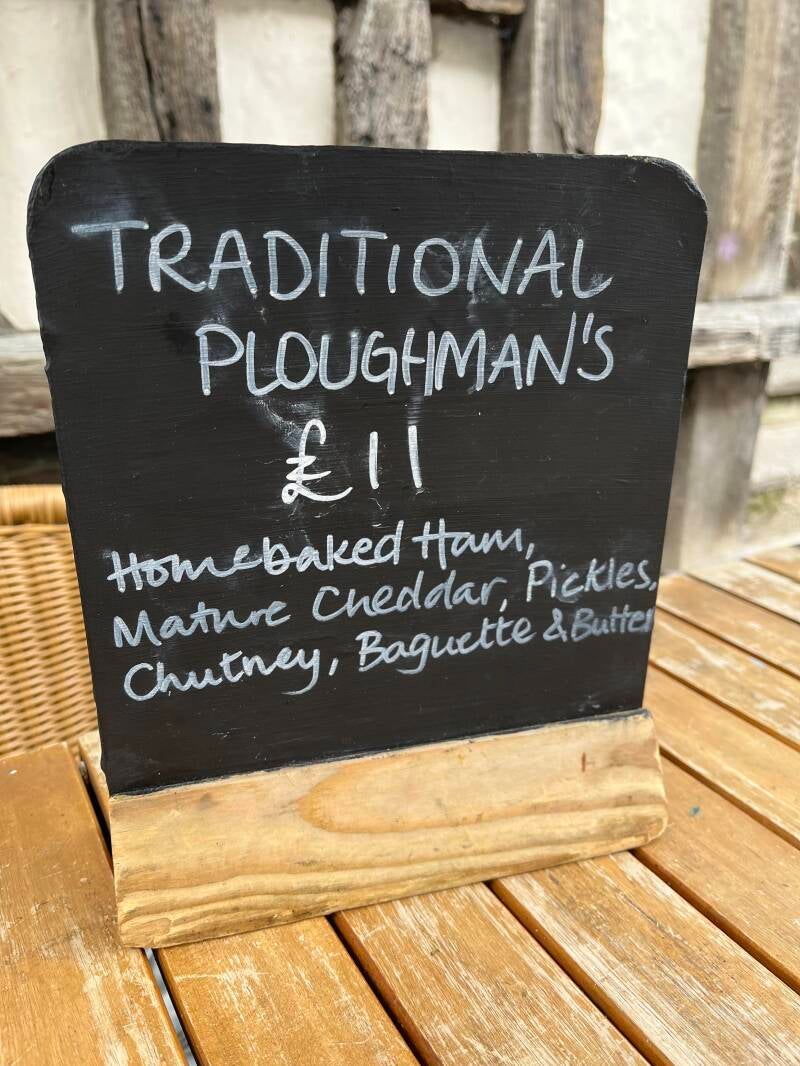 TRADITIONAL
PLOUGHMAN'S
£11
Homebaked Ham,
Mature Cheddar, Pickles,
Chutney, Baguette & Butter